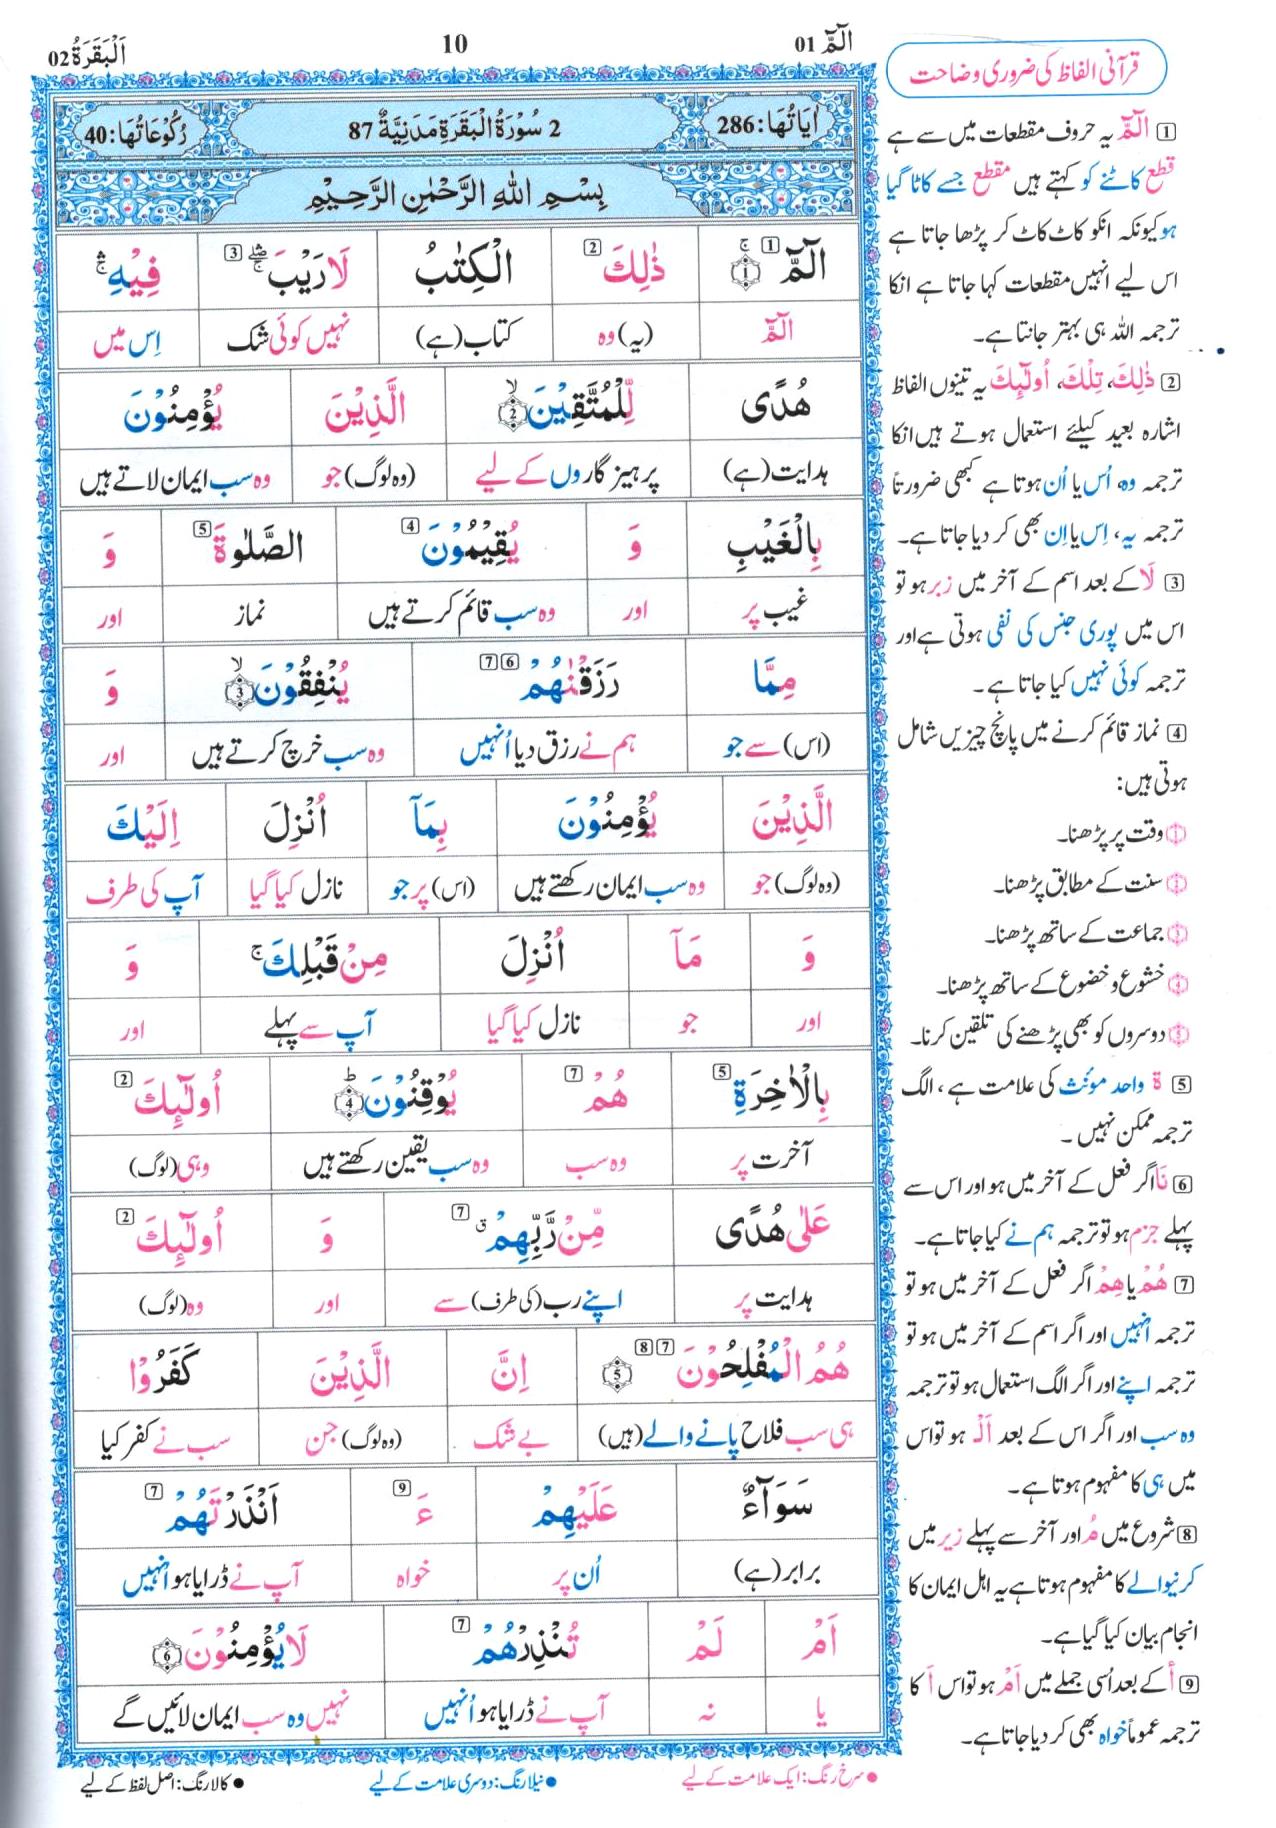 الٓمّٓ 01
10
اَلْبَقَرَةُ 02
اٰيَاتُهَا: 286
2 سُوْرَةُ الْبَقَرَةِ مَدَنِيَّةٌ 87
رُكُوْعَاتُهَا: 40
بِسْمِ اللّٰهِ الرَّحْمٰنِ الرَّحِيْمِ
الٓمّٓ 1 ۚ ﴿1﴾ ذٰلِكَ 2 الْكِتٰبُ لَا رَيْبَ ۛۖ 3 فِيْهِ ۛۚ
الٓمّٓ (یہ) وہ کتاب (ہے) نہیں کوئی شک اِس میں
هُدًى لِّلْمُتَّقِيْنَ ۙ ﴿2﴾ الَّذِيْنَ يُؤْمِنُوْنَ
ہدایت (ہے) پرہیز گاروں کے لیے (وہ لوگ) جو وہ سب ایمان لاتے ہیں
بِالْغَيْبِ وَ يُقِيْمُوْنَ 4 الصَّلٰوةَ 5 وَ
غیب پر اور وہ سب قائم کرتے ہیں نماز اور
مِمَّا رَزَقْنٰهُمْ 6 7 يُنْفِقُوْنَ ۙ ﴿3﴾ وَ
(اس) سے جو ہم نے رزق دیا اُنہیں وہ سب خرچ کرتے ہیں اور
الَّذِيْنَ يُؤْمِنُوْنَ بِمَآ اُنْزِلَ اِلَيْكَ
(وہ لوگ) جو وہ سب ایمان رکھتے ہیں (اس) پر جو نازل کیا گیا آپ کی طرف
وَ مَآ اُنْزِلَ مِنْ قَبْلِكَ ۚ وَ
اور جو نازل کیا گیا آپ سے پہلے اور
بِالْاٰخِرَةِ 5 هُمْ 7 يُوْقِنُوْنَ ؕ ﴿4﴾ اُولٰٓئِكَ 2
آخرت پر وہ سب وہ سب یقین رکھتے ہیں وہی (لوگ)
عَلٰى هُدًى مِّنْ رَّبِّهِمْ ۤق 7 وَ اُولٰٓئِكَ 2
ہدایت پر اپنے رب (کی طرف) سے اور وہ (لوگ)
هُمُ الْمُفْلِحُوْنَ 7 8 ﴿5﴾ اِنَّ الَّذِيْنَ كَفَرُوْا
ہی سب فلاح پانے والے (ہیں) بے شک (وہ لوگ) جن سب نے کفر کیا
سَوَآءٌ عَلَيْهِمْ ءَ 9 اَنْذَرْتَهُمْ 7
برابر (ہے) اُن پر خواہ آپ نے ڈرایا ہو انہیں
اَمْ لَمْ تُنْذِرْهُمْ 7 لَا يُؤْمِنُوْنَ ﴿6﴾
یا نہ آپ نے ڈرایا ہو اُنہیں نہیں وہ سب ایمان لائیں گے
قرآنی الفاظ کی ضروری وضاحت
1 الٓمّٓ یہ حروف مقطعات میں سے ہے
قطع کاٹنے کو کہتے ہیں مقطع جسے کاٹا گیا
ہو کیونکہ انکو کاٹ کاٹ کر پڑھا جاتا ہے
اس لیے انہیں مقطعات کہا جاتا ہے انکا
ترجمہ اللہ ہی بہتر جانتا ہے۔
2 ذٰلِكَ، تِلْكَ، اُولٰٓئِكَ یہ تینوں الفاظ
اشارہ بعید کیلئے استعمال ہوتے ہیں انکا
ترجمہ وہ، اُس یا اُن ہوتا ہے کبھی ضرورتاً
ترجمہ یہ، اِس یا اِن بھی کر دیا جاتا ہے۔
3 لَا کے بعد اسم کے آخر میں زبر ہو تو
اس میں پوری جنس کی نفی ہوتی ہے اور
ترجمہ کوئی نہیں کیا جاتا ہے۔
4 نماز قائم کرنے میں پانچ چیزیں شامل
ہوتی ہیں:
۱ وقت پر پڑھنا۔
۲ سنت کے مطابق پڑھنا۔
۳ جماعت کے ساتھ پڑھنا۔
۴ خشوع و خضوع کے ساتھ پڑھنا۔
۵ دوسروں کو بھی پڑھنے کی تلقین کرنا۔
5 ةٌ واحد مونٔث کی علامت ہے، الگ
ترجمہ ممکن نہیں۔
6 نَا اگر فعل کے آخر میں ہو اور اس سے
پہلے جزم ہو تو ترجمہ ہم نے کیا جاتا ہے۔
7 هُمْ یا هِمْ اگر فعل کے آخر میں ہو تو
ترجمہ انہیں اور اگر اسم کے آخر میں ہو تو
ترجمہ اپنے اور اگر الگ استعمال ہو تو ترجمہ
وہ سب اور اگر اس کے بعد اَلْ ہو تو اس
میں ہی کا مفہوم ہوتا ہے۔
8 شروع میں مُ اور آخر سے پہلے زیر میں
کرنیوالے کا مفہوم ہوتا ہے یہ اہل ایمان کا
انجام بیان کیا گیا ہے۔
9 أ کے بعد اُسی جملے میں اَمْ ہو تو اس أ کا
ترجمہ عموماً خواہ بھی کر دیا جاتا ہے۔
● سرخ رنگ: ایک علامت کے لیے ● نیلا رنگ: دوسری علامت کے لیے ● کالا رنگ: اصل لفظ کے لیے